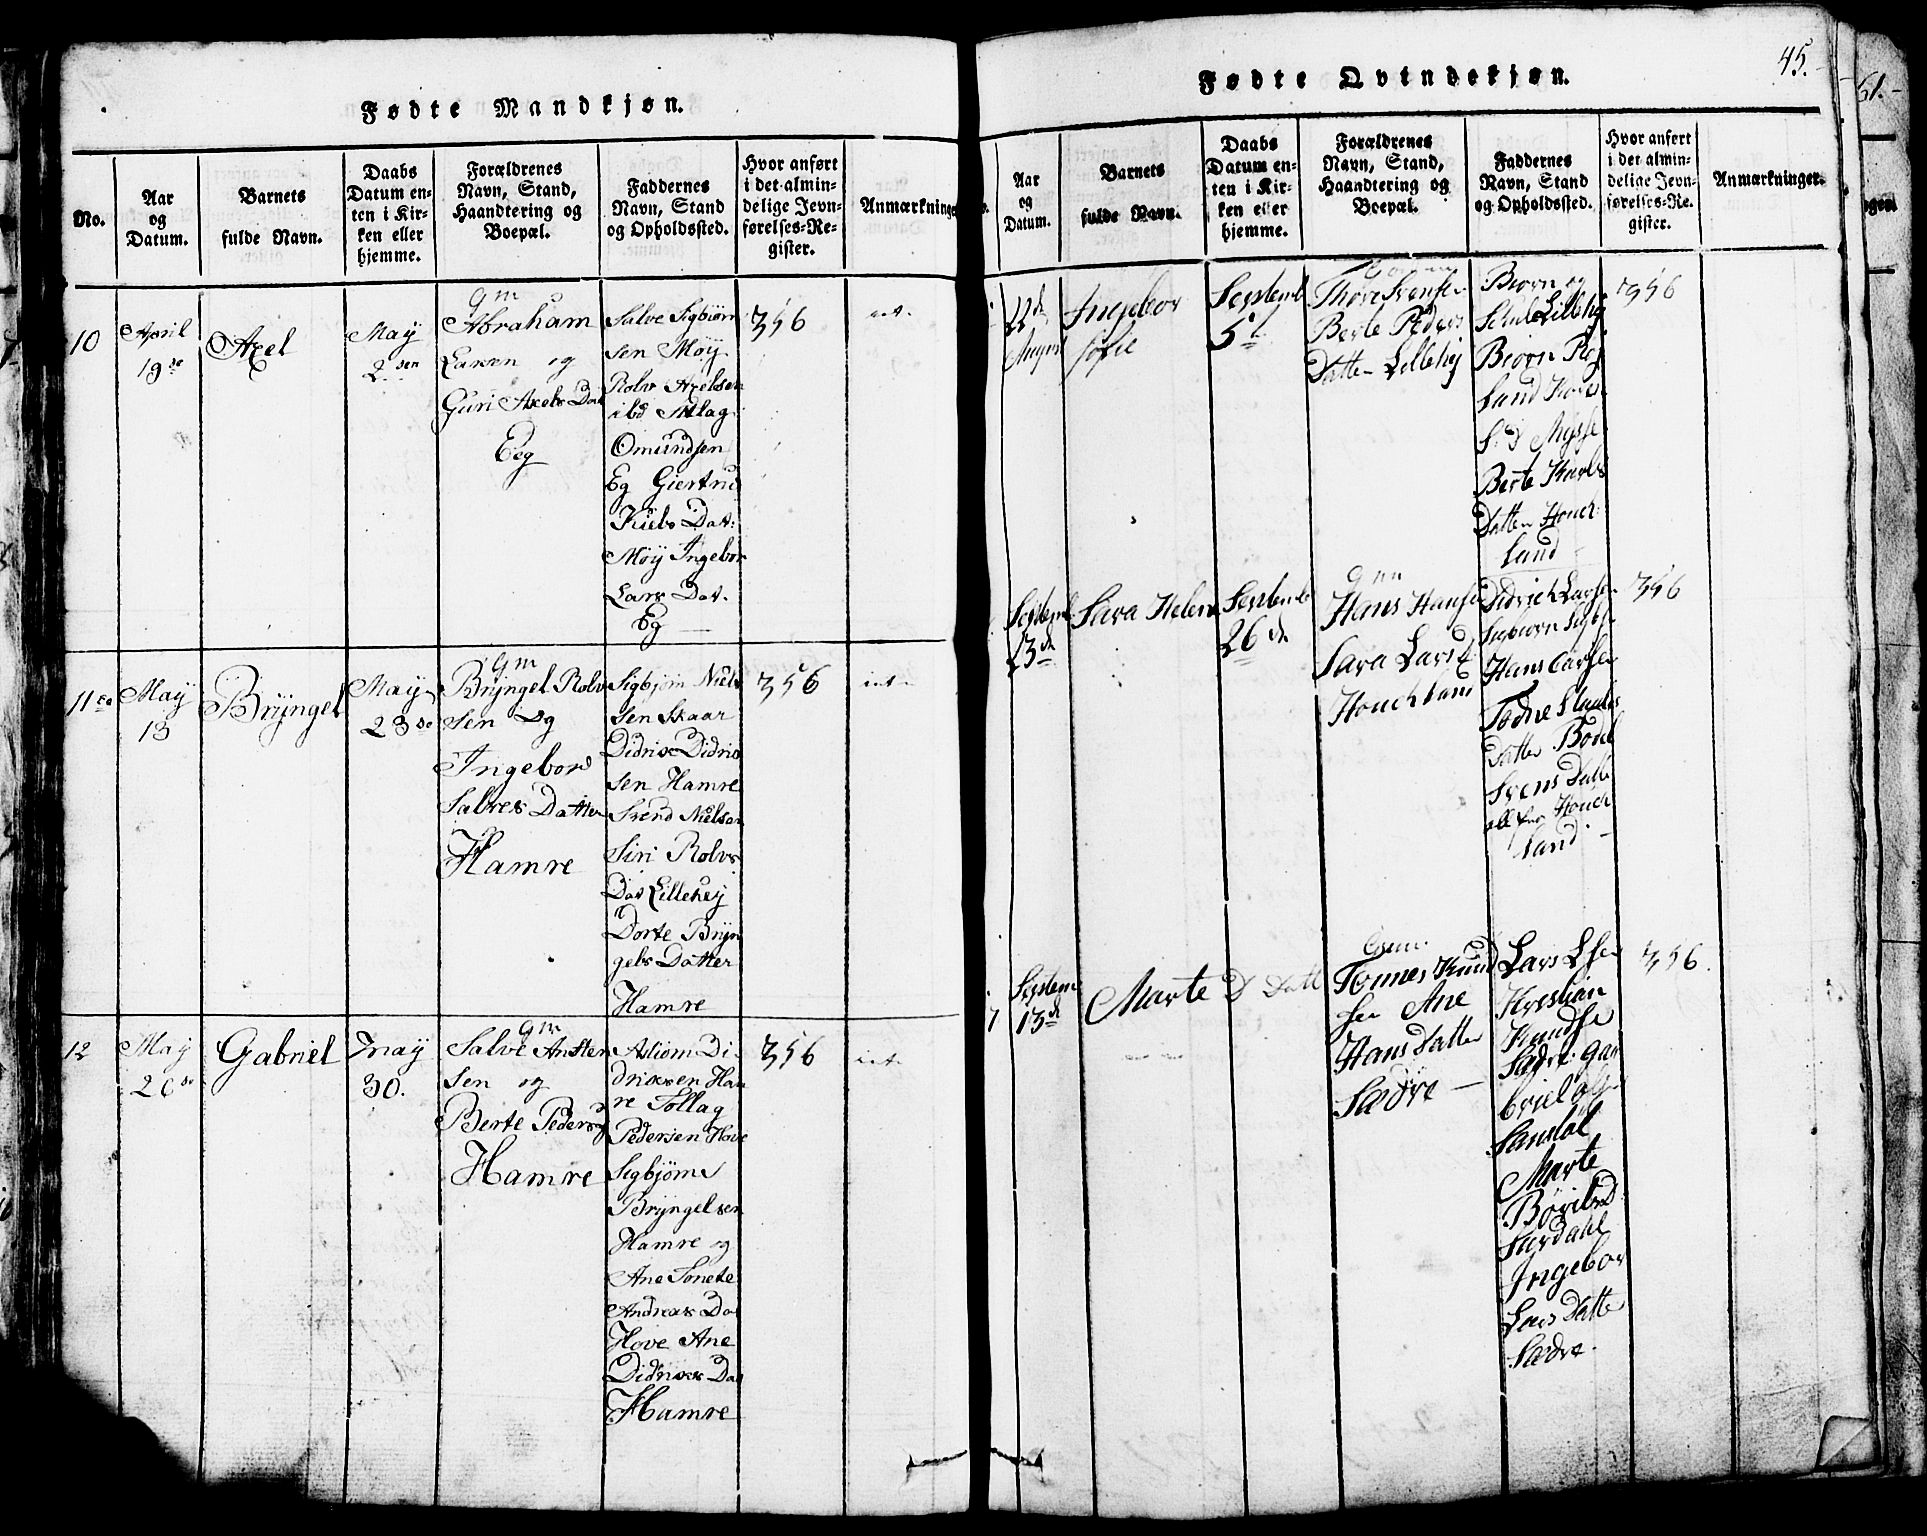 Fødte Mandkjøn.
No.
Aar
og
Datum.
Barnets
fulde Navn.
Daabs
Datum en-
ten i Kir-
ken eller
hjemme.
Forældrenes
Navn, Stand,
Haandtering og
Boepæl.
Faddernes
Navn, Stand
og Opholdssted.
Hvor anført
i det almin-
delige Jevn-
førelses-Re-
gister.
Anmærkninge
10
April
19de
Axel
May
2den
Gm
Abraham
Larsen og
Guri Axels Dat
Eeg
Salve Sigbiørn
sen Møÿ
Rolv Axelsen
ibd Atlag
Omundsen
Eg Giertru
Kiels Dat:
Møÿ Ingebor
Lars Dat.
Eg
356
11te
May
13
Brÿngel
May
23de
Gm
Brÿngel Rolv
sen og
Ingebor
Salves Datter
Hamre
Sigbjørn Niels
sen Skaar
Didrix Didrix
sen Hamre
Svend Nielsen
Siri Rolvs
Dat Lillehej
Dorte Brÿn
gels Datter
Hamre
356
12
May
26de
Gabriel
May
30.
Gm
Salve Ansten
sen og
Berte Peders
Hamre
Asbiørn Di
drixsen Ham
re Tollag
Pedersen Hove
Sigbjørn
Brÿngelsen
Hamre og
Ane Tonete
Andreas Da
Hove Ane
Didrixs Dat
Hamre
356
Fødte Qvindekjøn.
45.
Aar
og
Datum.
Barnets
fulde Navn.
Daabs
Datum en-
ten i Kir-
ken eller
hjemme.
Forældrenes
Navn, Stand,
Haandtering og
Boepæl.
Faddernes
Navn, Stand
og Opholdssted.
Hvor anført
i det almin-
delige Jevn-
førelses-Re-
gister.
Anmærkninger.
22de
August
Ingebor
Sofie
Septemb
5te
Thore Svensen
Berte Peders
Datter Lillehej
Biørn og
Lillehej
Biørn
land
Berte Karls
Datter Houch
land
356
Septemb
13de
Sara Helene
Septemb
26de
Gm
Hans Hansen
Sara Lars D
Houchland
Didrich Larsen
Sigbiørn
Hans Larsen
Todne
Datter Bodel
Svens Datte
alle fra Houch
land
356
7
Septem
13de
Marte
D Datt
Gm
Tønnes Knud
sen Ane
Hans Datter
Sædre
Lars Lsen
Krestian
Knudsen
Sædre Ga
briel
Sandal
Marte
Særdahl
Ingebor
Lars Datter
Sædre.
356.
61.